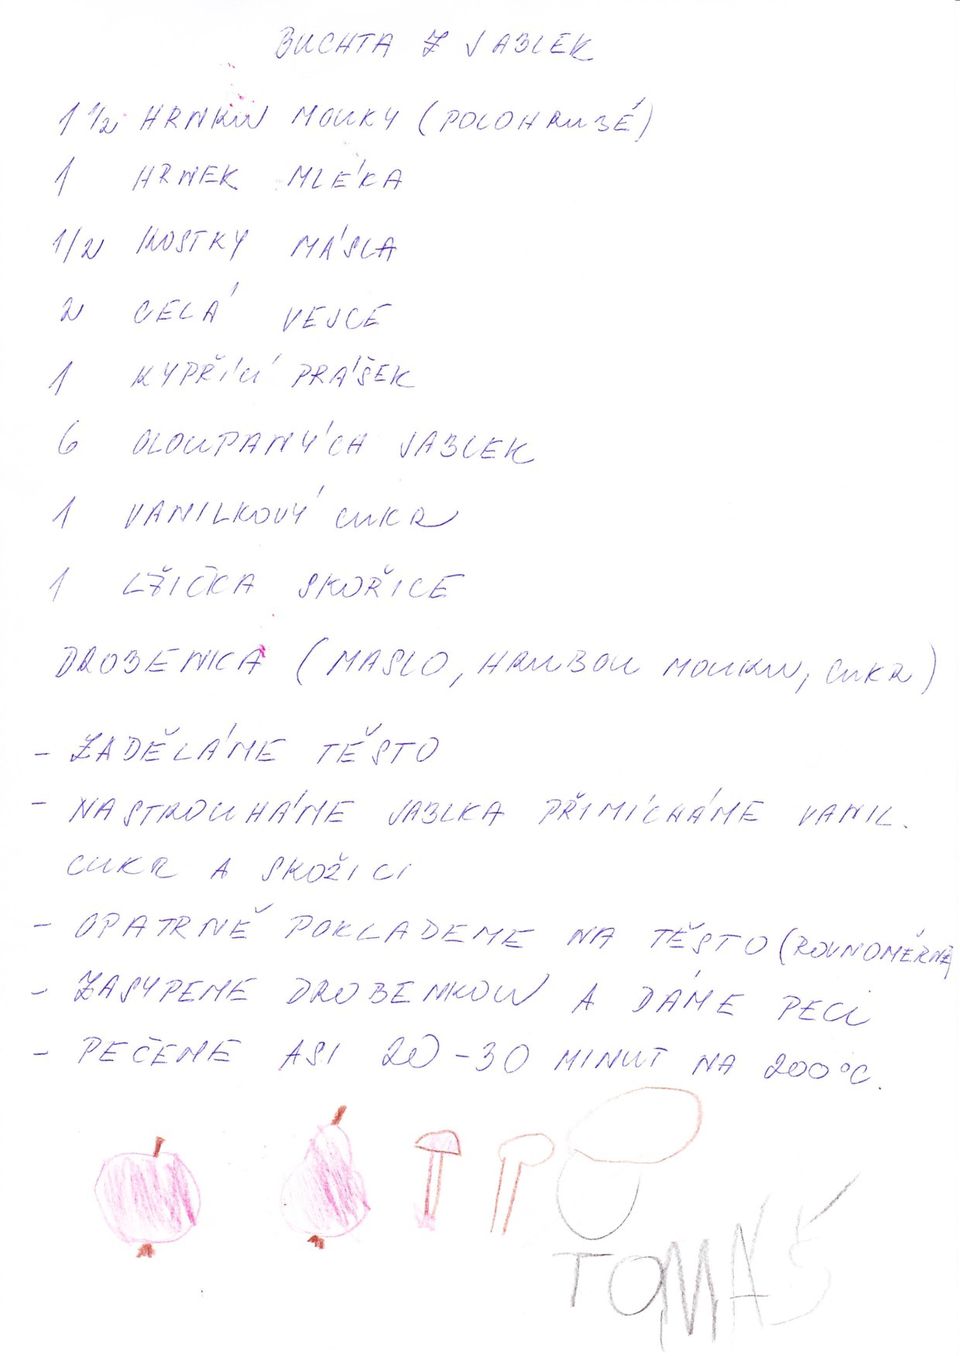 BUCHTA Z JABLEK
1 1/2 HRNKU MOUKY (POLOHRUBÉ)
1 HRNEK MLÉKA
1/2 KOSTKY MÁSLA
2 CELÁ VEJCE
1 KYPŘÍCÍ PRÁŠEK
6 OLOUPANÝCH JABLEK
1 VANILKOVÝ CUKR
1 LŽIČKA SKOŘICE
DROBENKA (MASLO, HRUBOU MOUKU, CUKR)
- ZADĚLÁME TĚSTO
- NASTROUHÁME JABLKA PŘIMÍCHÁME VANIL.
CUKR A SKOŽICI
- OPATRNĚ POKLADEME NA TĚSTO (ROVNOMĚRNĚ)
- ZASYPEME DROBENKOU A DÁME PECI
- PEČEME ASI 20-30 MINUT NA 200°C.
TOMÁŠ